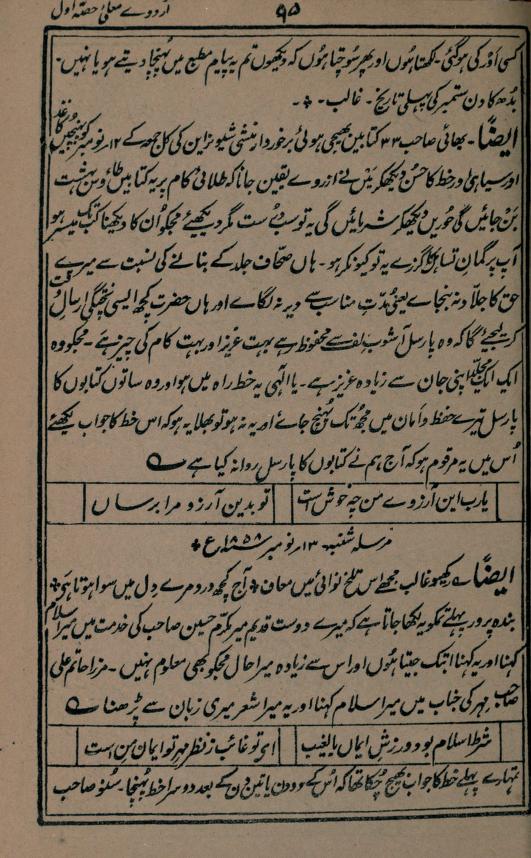 ۹۵
اردوے معلیٰ حصّہ اول
کسی اَور کی ہو گئی۔ لکھتا ہُوں اور پھر سُوچتا ہُوں کہ دیکھوں تم یہ پیام مطبع میں پُہنچا دیتے ہو یا نہیں۔
بُدھ کا دن ستمبر کی پہلی تاریخ۔ غالب۔
ایضًا۔ بھائی صاحب ۳۳ کتابیں بھیجی ہوئی برخوردار منشی شیونراین کی کل جمعہ کے ۱۲ نومبر کو پُہنچیں کاغذ
اور سیاہی اور خط کا حسُن دیکھکر مَیں نے ازروے یقین جانا کہ طلائی کام پر یہ کتابیں طاؤس بہشت
بن جائیں گی حُوریں دیکھکر شرمائیں گی یہ تو سب دُرست مگر دیکھئے مجکو اُن کا دیکھنا کب تک میسر ہو
آپ پر گمان تساہل کا گزرے یہ تو کیونکر ہو۔ ہاں صحّاف جلد کے بنانے کی نسبت سے میرے
حق کا جلّاد نہ بنجاے یعنی مُدّتِ مناسب سے دیر نہ لگاے اور ہاں حضرت کچھ ایسی پُختگی ارسال کے وقت
کر لیجئے گا کہ وہ پارسل آشوب تلف سے محفوظ رہے بہت عزیز اور بہت کام کی چیز ہے۔ مجکو وہ
ایک ایک مجلّد اپنی جان سے زیادہ عزیز ہے۔ یا الٰہی یہ خط راہ میں ہو اور وہ ساتوں کتابوں کا
پارسل تیرے حفظ و اَمان میں مجُھ تک پُہنچ جائے اور یہ نہ ہو تو بھلا یہ ہو کہ اس خط کا جواب لکھئے
اُس میں یہ مرقوم ہو کہ آج ہم نے کتابوں کا پارسل روانہ کیا ہے
یارب این آرزوے من چہ خوش است
تو بدین آرزو مرا برساں
مرسلہ شنبہ ۱۳ نومبر ۱۸۵۸ع
ایضًا رکھیو غالب مجھے اس تلخ نوائی میں معاف آج کچھ درد مرے دل میں سوا ہوتا ہی
بندہ پرور پہلے تمکو یہ لکھا جاتا ہے کہ میرے دوست قدیم میر مکرّم حسین صاحب کی خدمت میں میرا سلام
کہنا اور یہ کہنا ابتک جیتا ہُوں اور اس سے زیادہ میرا حال مجکو بھی معلوم نہیں۔ مرزا حاتم علی
صاحب مہر کی جناب میں میرا سلام کہنا اور یہ میرا شعر میری زبان سے پڑھنا
شرط اسلام بود ورزشِ ایماں بالغیب
ای تو غائب ز نظر مہر تو ایمان من است
تمہارے پہلے خط کا جواب بھیج چُکا تھا کہ اُس کے دو دن یا تین دن کے بعد دوسرا خط پُہنچا۔ سُنو صاحب